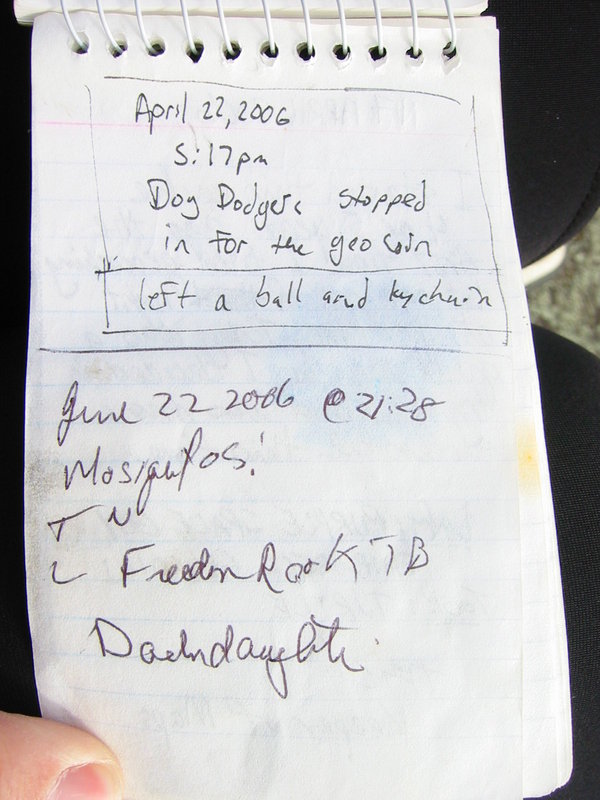 April 22, 2006
5:17pm
Dog Dodgers stopped
in for the geo coin
left a ball and kychain
June 22 2006 @ 21:28
Mosiquitos!
T N
L Freedom Rock TB